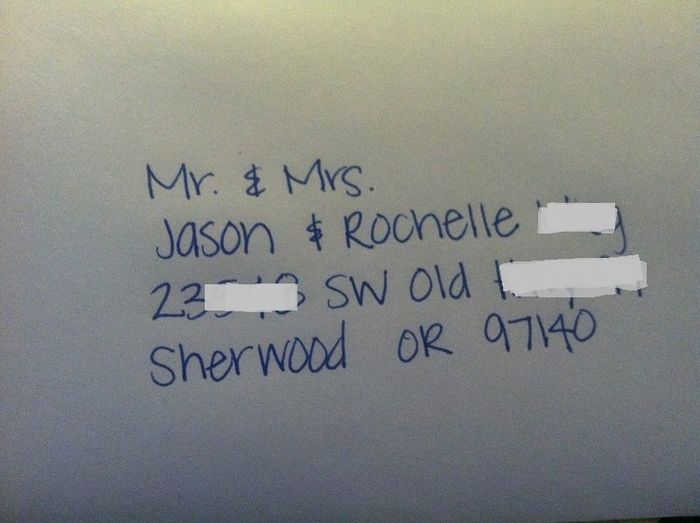 Mr. & Mrs.
Jason & Rochelle
SW Old
Sherwood OR 97140